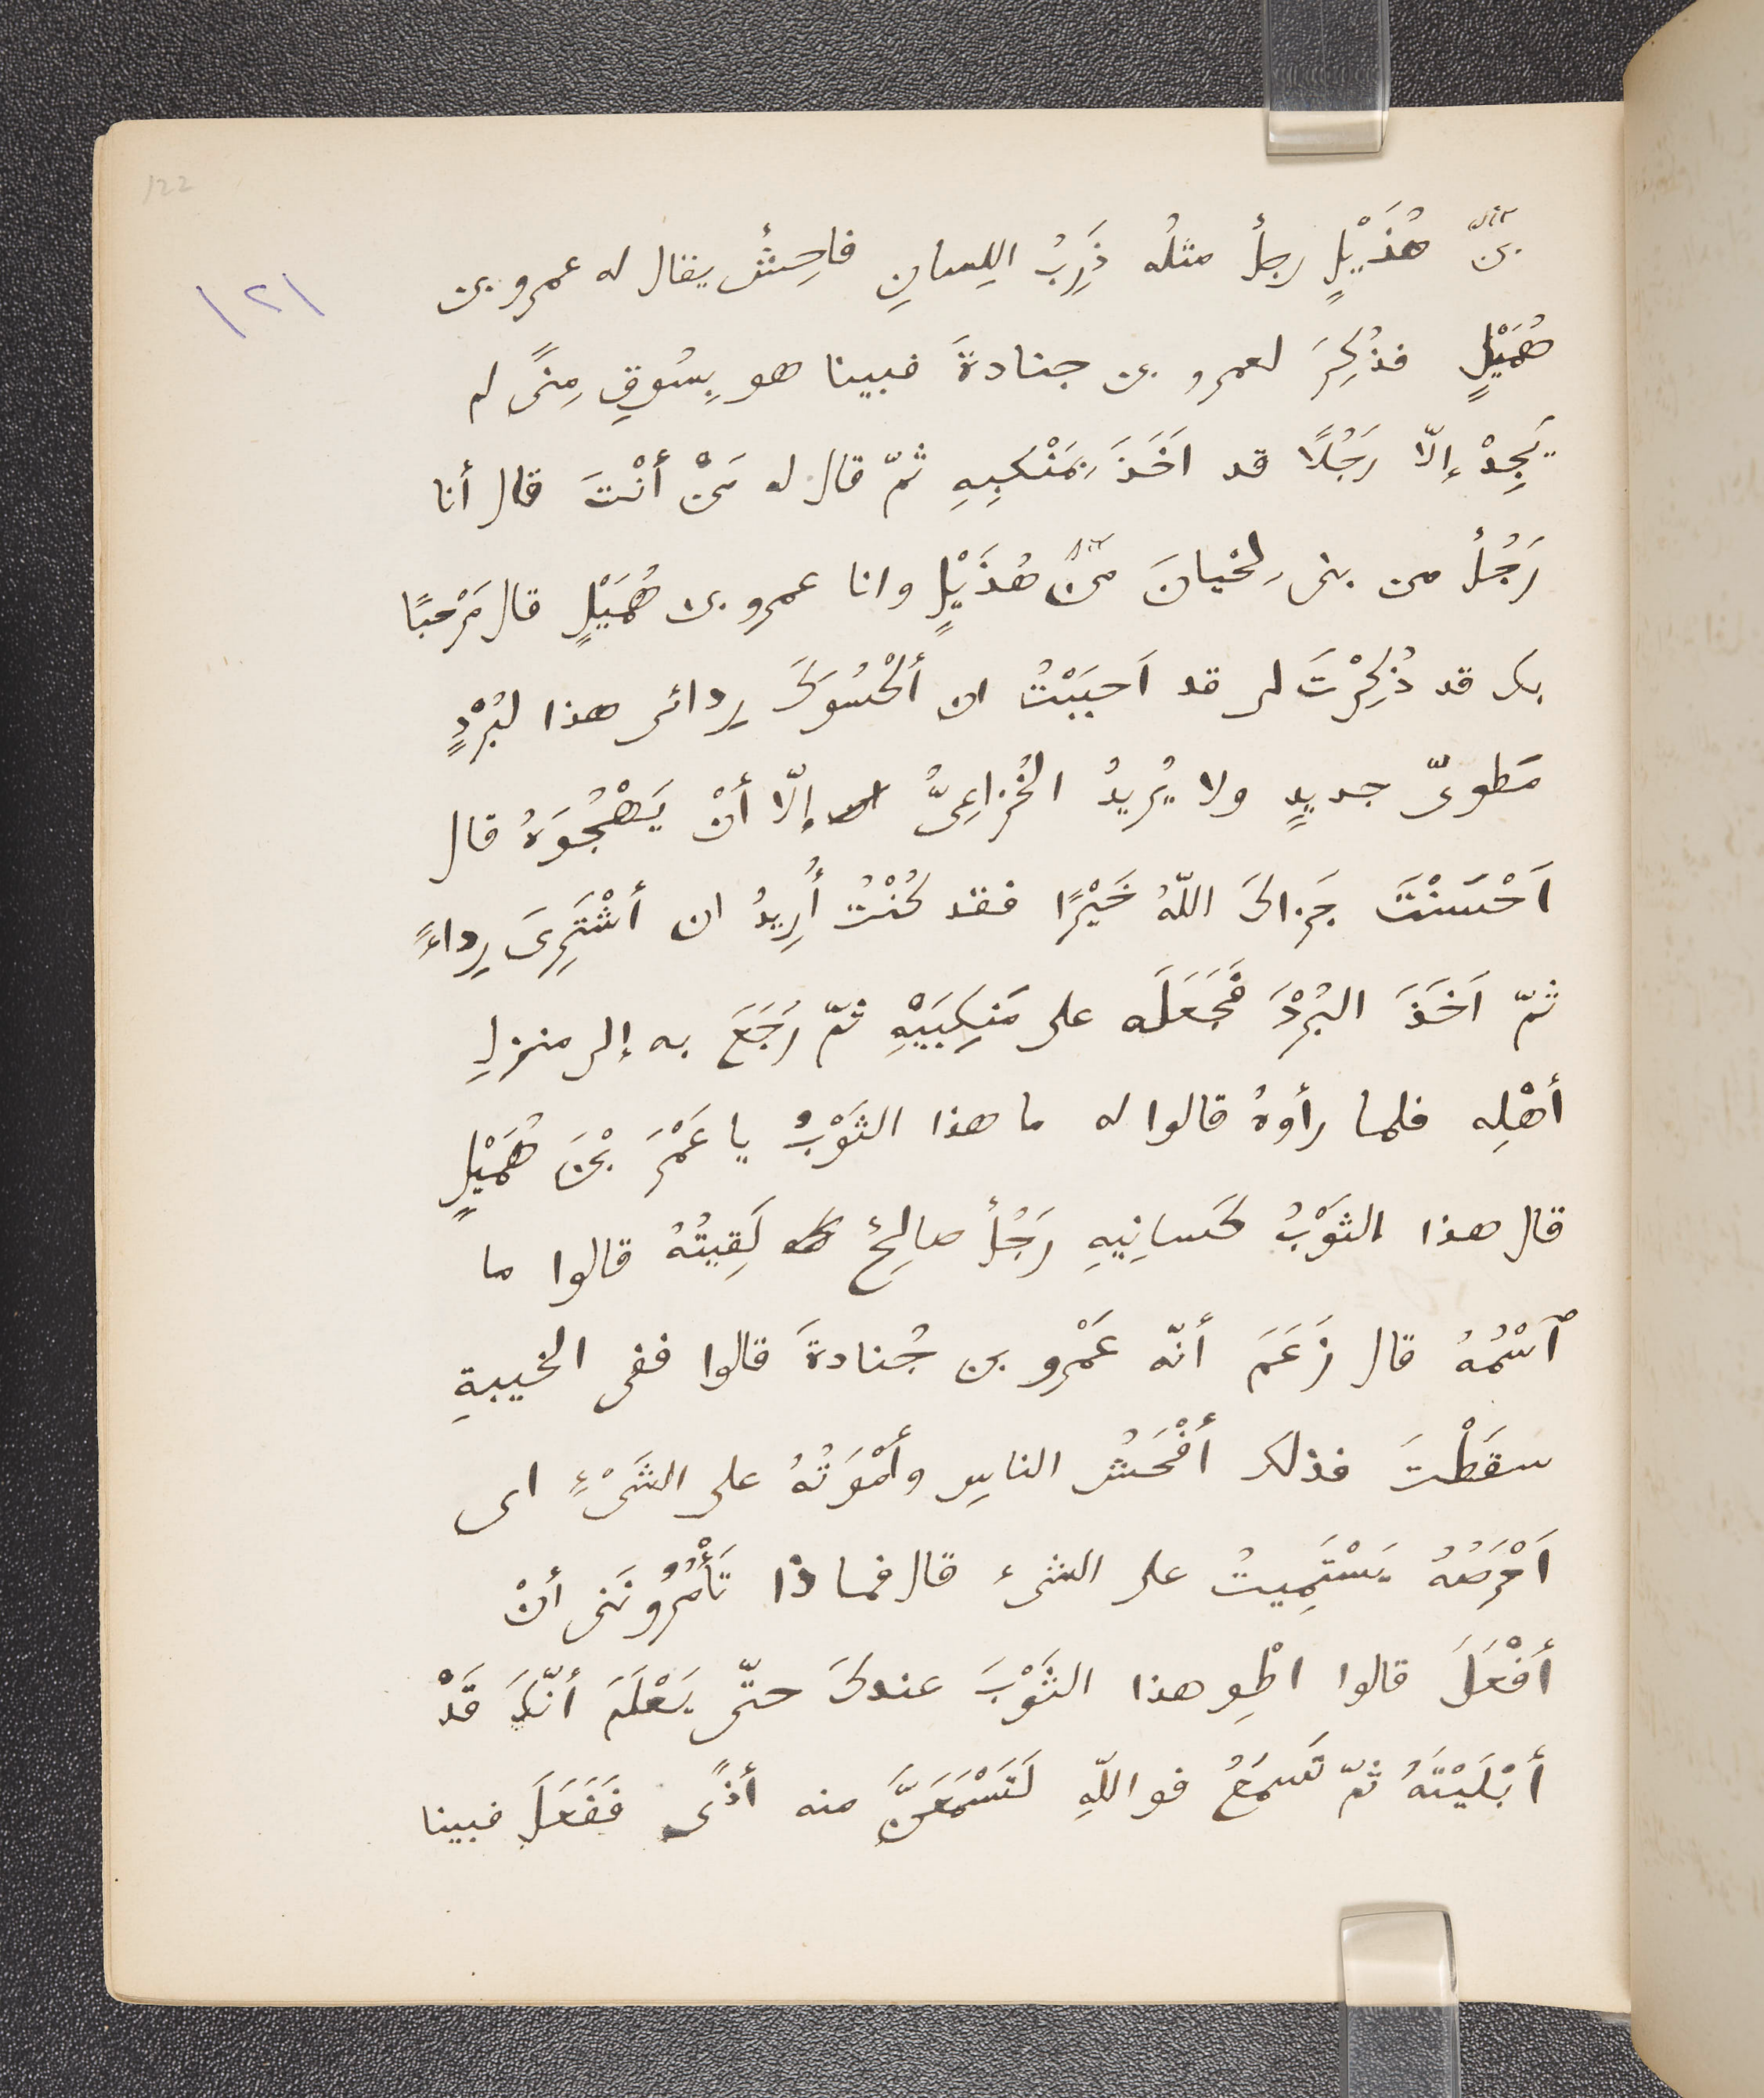 122
١٢١
بن هُذَيْلٍ رجلٌ مثلُه ذَرِبُ اللِسانِ فاحِشٌ يقال له عمرو بن
هُمَيْلٍ فذُكِرَ لعمرو بن جنادةَ فبينا هو بِسُوقِ مِنًى لم
يَجِدْ إلّا رَجُلًا قد اَخَذَ بمَنْكَبِهِ ثمّ قال له مَنْ أنْتَ قال أنا
رَجُلٌ من بنى لِحْيانَ من هُذَيْلٍ وانا عمرو بن هُمَيْلٍ قال مَرْحبًا
بك قد ذُكِرْتَ لى قد اَحبَبْتُ ان أكْسُوَكَ رِدائى هذا لبُرْدٍ
مَطوىّ جديدٍ ولا يُرِيدُ الخُزاعِىُّ إلّا أنْ يَهْجُوَهُ قال
اَحْسَنْتَ جَزاكَ اللّهُ خَيْرًا فقد كُنْتُ أُرِيدُ ان أشْتَرِىَ رِداءً
ثمّ اَخَذَ البُرْدَ فَجَعَلَه على مَنكِبَيْهِ ثمّ رَجَعَ به إلى منزلِ
أهْلِه فلما رأوهُ قالوا له ما هذا الثَوْبُ يا عَمْرَ بْنَ هُمَيْلٍ
قال هذا الثَوْبُ كَسانِيهِ رَجُلٌ صالِحٌ لَقِيتُهُ قالوا ما
ٱسْمُهُ قال زَعَمَ أنّه عَمْرو بن جُنادةَ قالوا ففى الخيبةِ
سقَطْتَ فذلك أفْحَشُ الناسِ وأمْوَتُهُ على الشَىْءِ اى
اَحْرَصُهُ يَسْتَمِيتُ على الشىء قال فماذا تَأْمُرُونَنى أنْ
أفْعَلَ قالوا اطْوِ هذا الثَوْبَ عندكَ حتّى يَعْلَمَ أنّكَ قَدْ
أبْلَيْتَهُ ثمّ تَسمَعُ فواللّهِ لَتَسْمَعَنَّ منه أذًى فَفَعَلَ فبينا